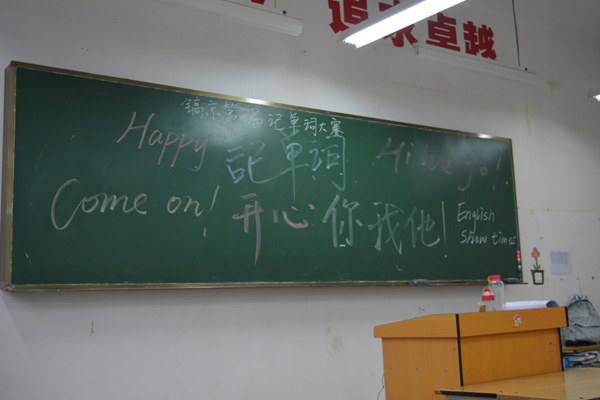 追求卓越
镐京第一届记单词大赛
Happy 記单词 go!
Come on! 开心 你我他! English
Show time